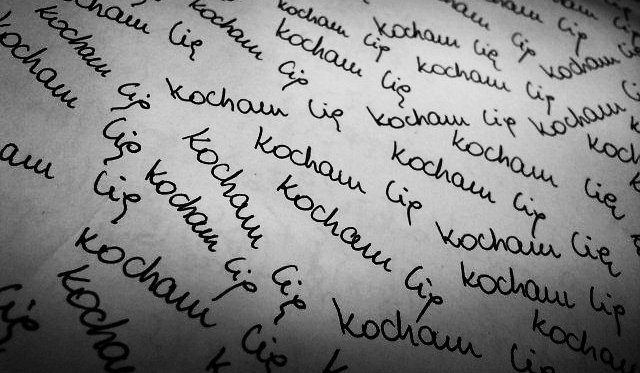 kocham Cię
kocham Cię
kocham Cię
kocham Cię
kocham Cię
kocham Cię
kocham Cię
kocham Cię
kocham Cię
kocham Cię
kocham
kocham Cię
kocham Cię
kocham Cię
kocham Cię
Cię
kocham Cię
kocham Cię
kocham Cię
kocham Cię
kocham Cię
kocham Cię
kocham Cię
kocham
kocham